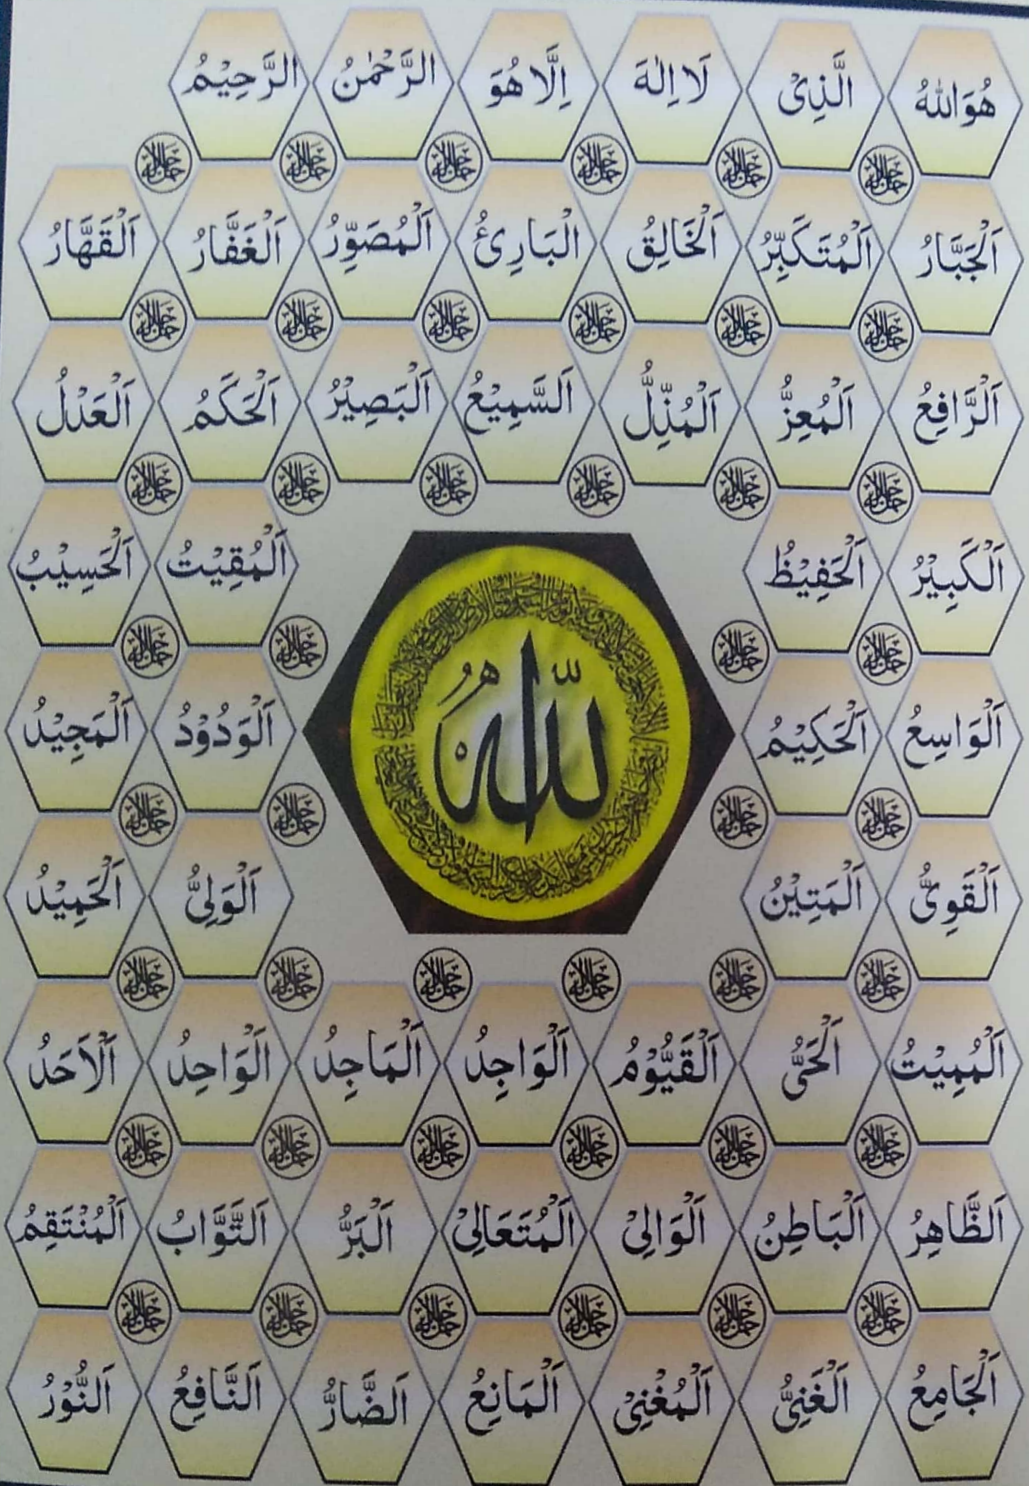 هُوَاللهُ الَّذِىْ لَا اِلٰهَ اِلَّا هُوَ الرَّحْمٰنُ الرَّحِيْمُ
اَلْجَبَّارُ اَلْمُتَكَبِّرُ اَلْخَالِقُ الْبَارِئُ اَلْمُصَوِّرُ اَلْغَفَّارُ اَلْقَهَّارُ
اَلرَّافِعُ اَلْمُعِزُّ اَلْمُذِلُّ اَلسَّمِيْعُ اَلْبَصِيْرُ اَلْحَكَمُ اَلْعَدْلُ
اَلْكَبِيْرُ اَلْحَفِيْظُ اَلْمُقِيْتُ اَلْحَسِيْبُ
اَلْوَاسِعُ اَلْحَكِيْمُ الله اَلْوَدُوْدُ اَلْمَجِيْدُ
اَلْقَوِىُّ اَلْمَتِيْنُ اَلْوَلِىُّ اَلْحَمِيْدُ
اَلْمُمِيْتُ اَلْحَىُّ اَلْقَيُّوْمُ اَلْوَاجِدُ اَلْمَاجِدُ اَلْوَاحِدُ اَلْاَحَدُ
اَلظَّاهِرُ اَلْبَاطِنُ اَلْوَالِىْ اَلْمُتَعَالِىْ اَلْبَرُّ اَلتَّوَّابُ اَلْمُنْتَقِمُ
اَلْجَامِعُ اَلْغَنِىُّ اَلْمُغْنِىْ اَلْمَانِعُ اَلضَّارُّ اَلنَّافِعُ اَلنُّوْرُ